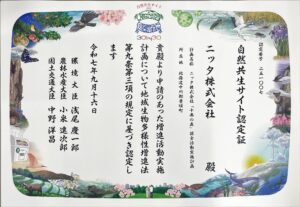 自然共生サイト
30by30
認定番号
自然共生サイト認定証
ニッタ株式会社 殿
貴殿より申請のあった増進活動実施
計画について地域生物多様性増進法
第九条第三項の規定に基づき認定し
ます
令和七年九月十六日
環境大臣 浅尾慶一郎
農林水産大臣 小泉進次郎
国土交通大臣 中野洋昌